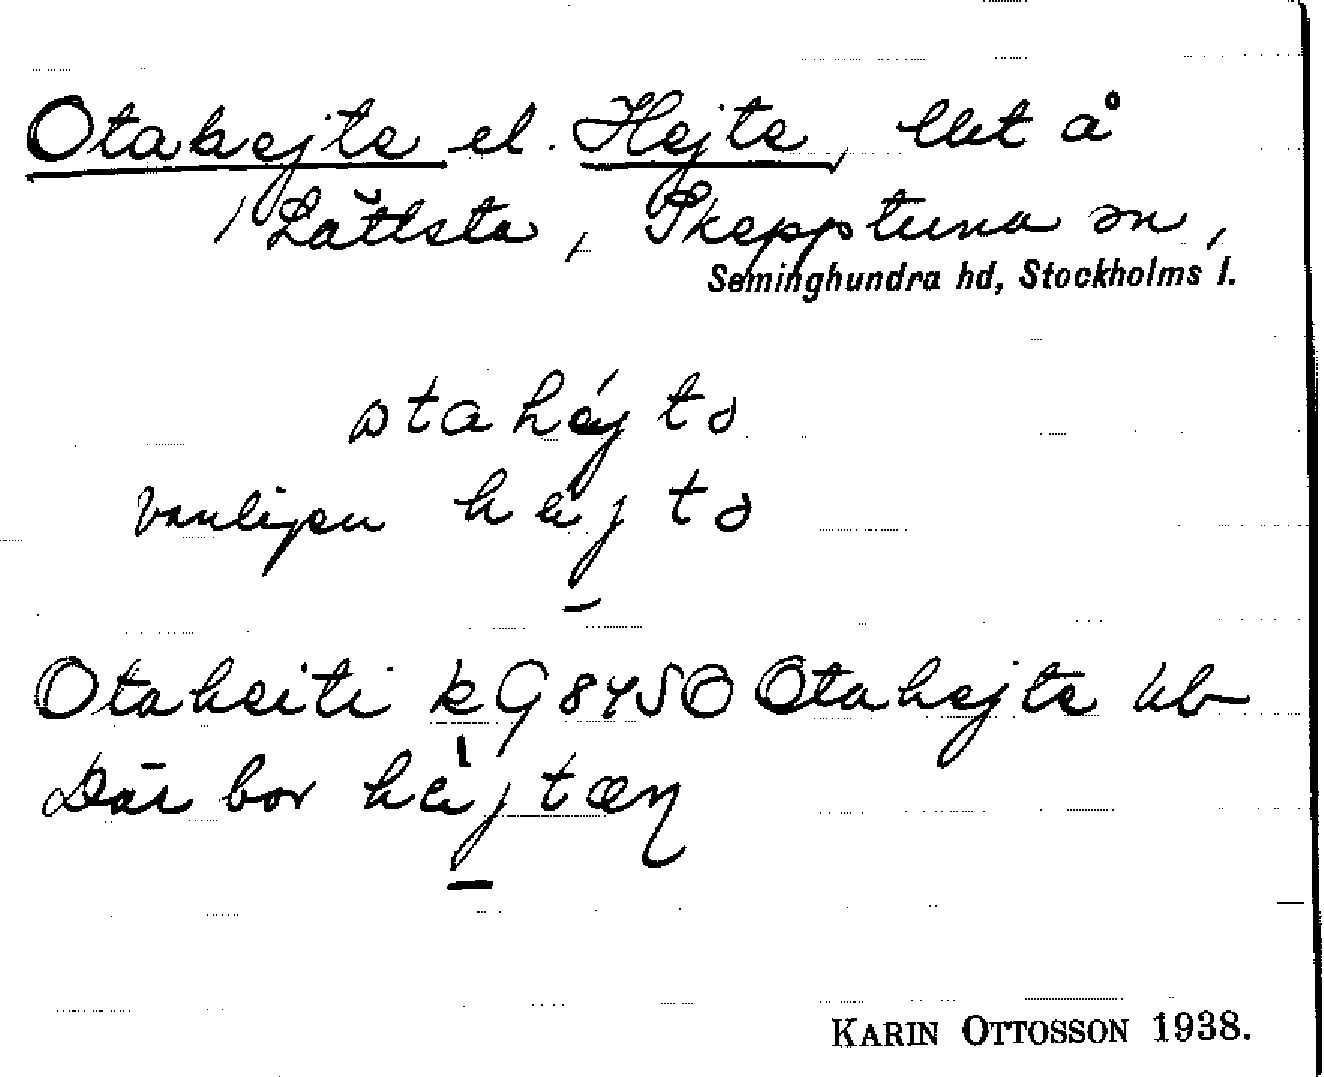 Otahejte el. Hejte, lht å
1 Lättsta, Skepptuna sn,
Seminghundra hd, Stockholms l.
otahejtə
vanligen hejtə
Otaheiti k G 8450 Otahejte hb
Där bor hejtæn
KARIN OTTOSSON 1938.